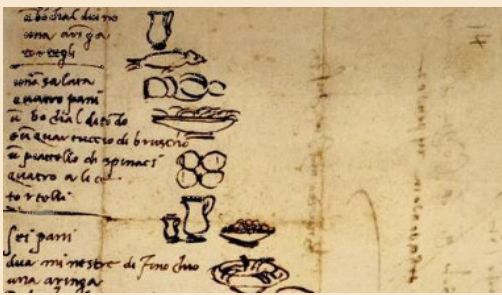 ū bochal di vino
una aringa
tortegli
una salata
quatro pani
ū bochal di tōdo
e ū quartuccio di bruscho
ū piattello di spinaci
quatro alice
tortelli
sei pani
dua minestre di finochio
una aringa